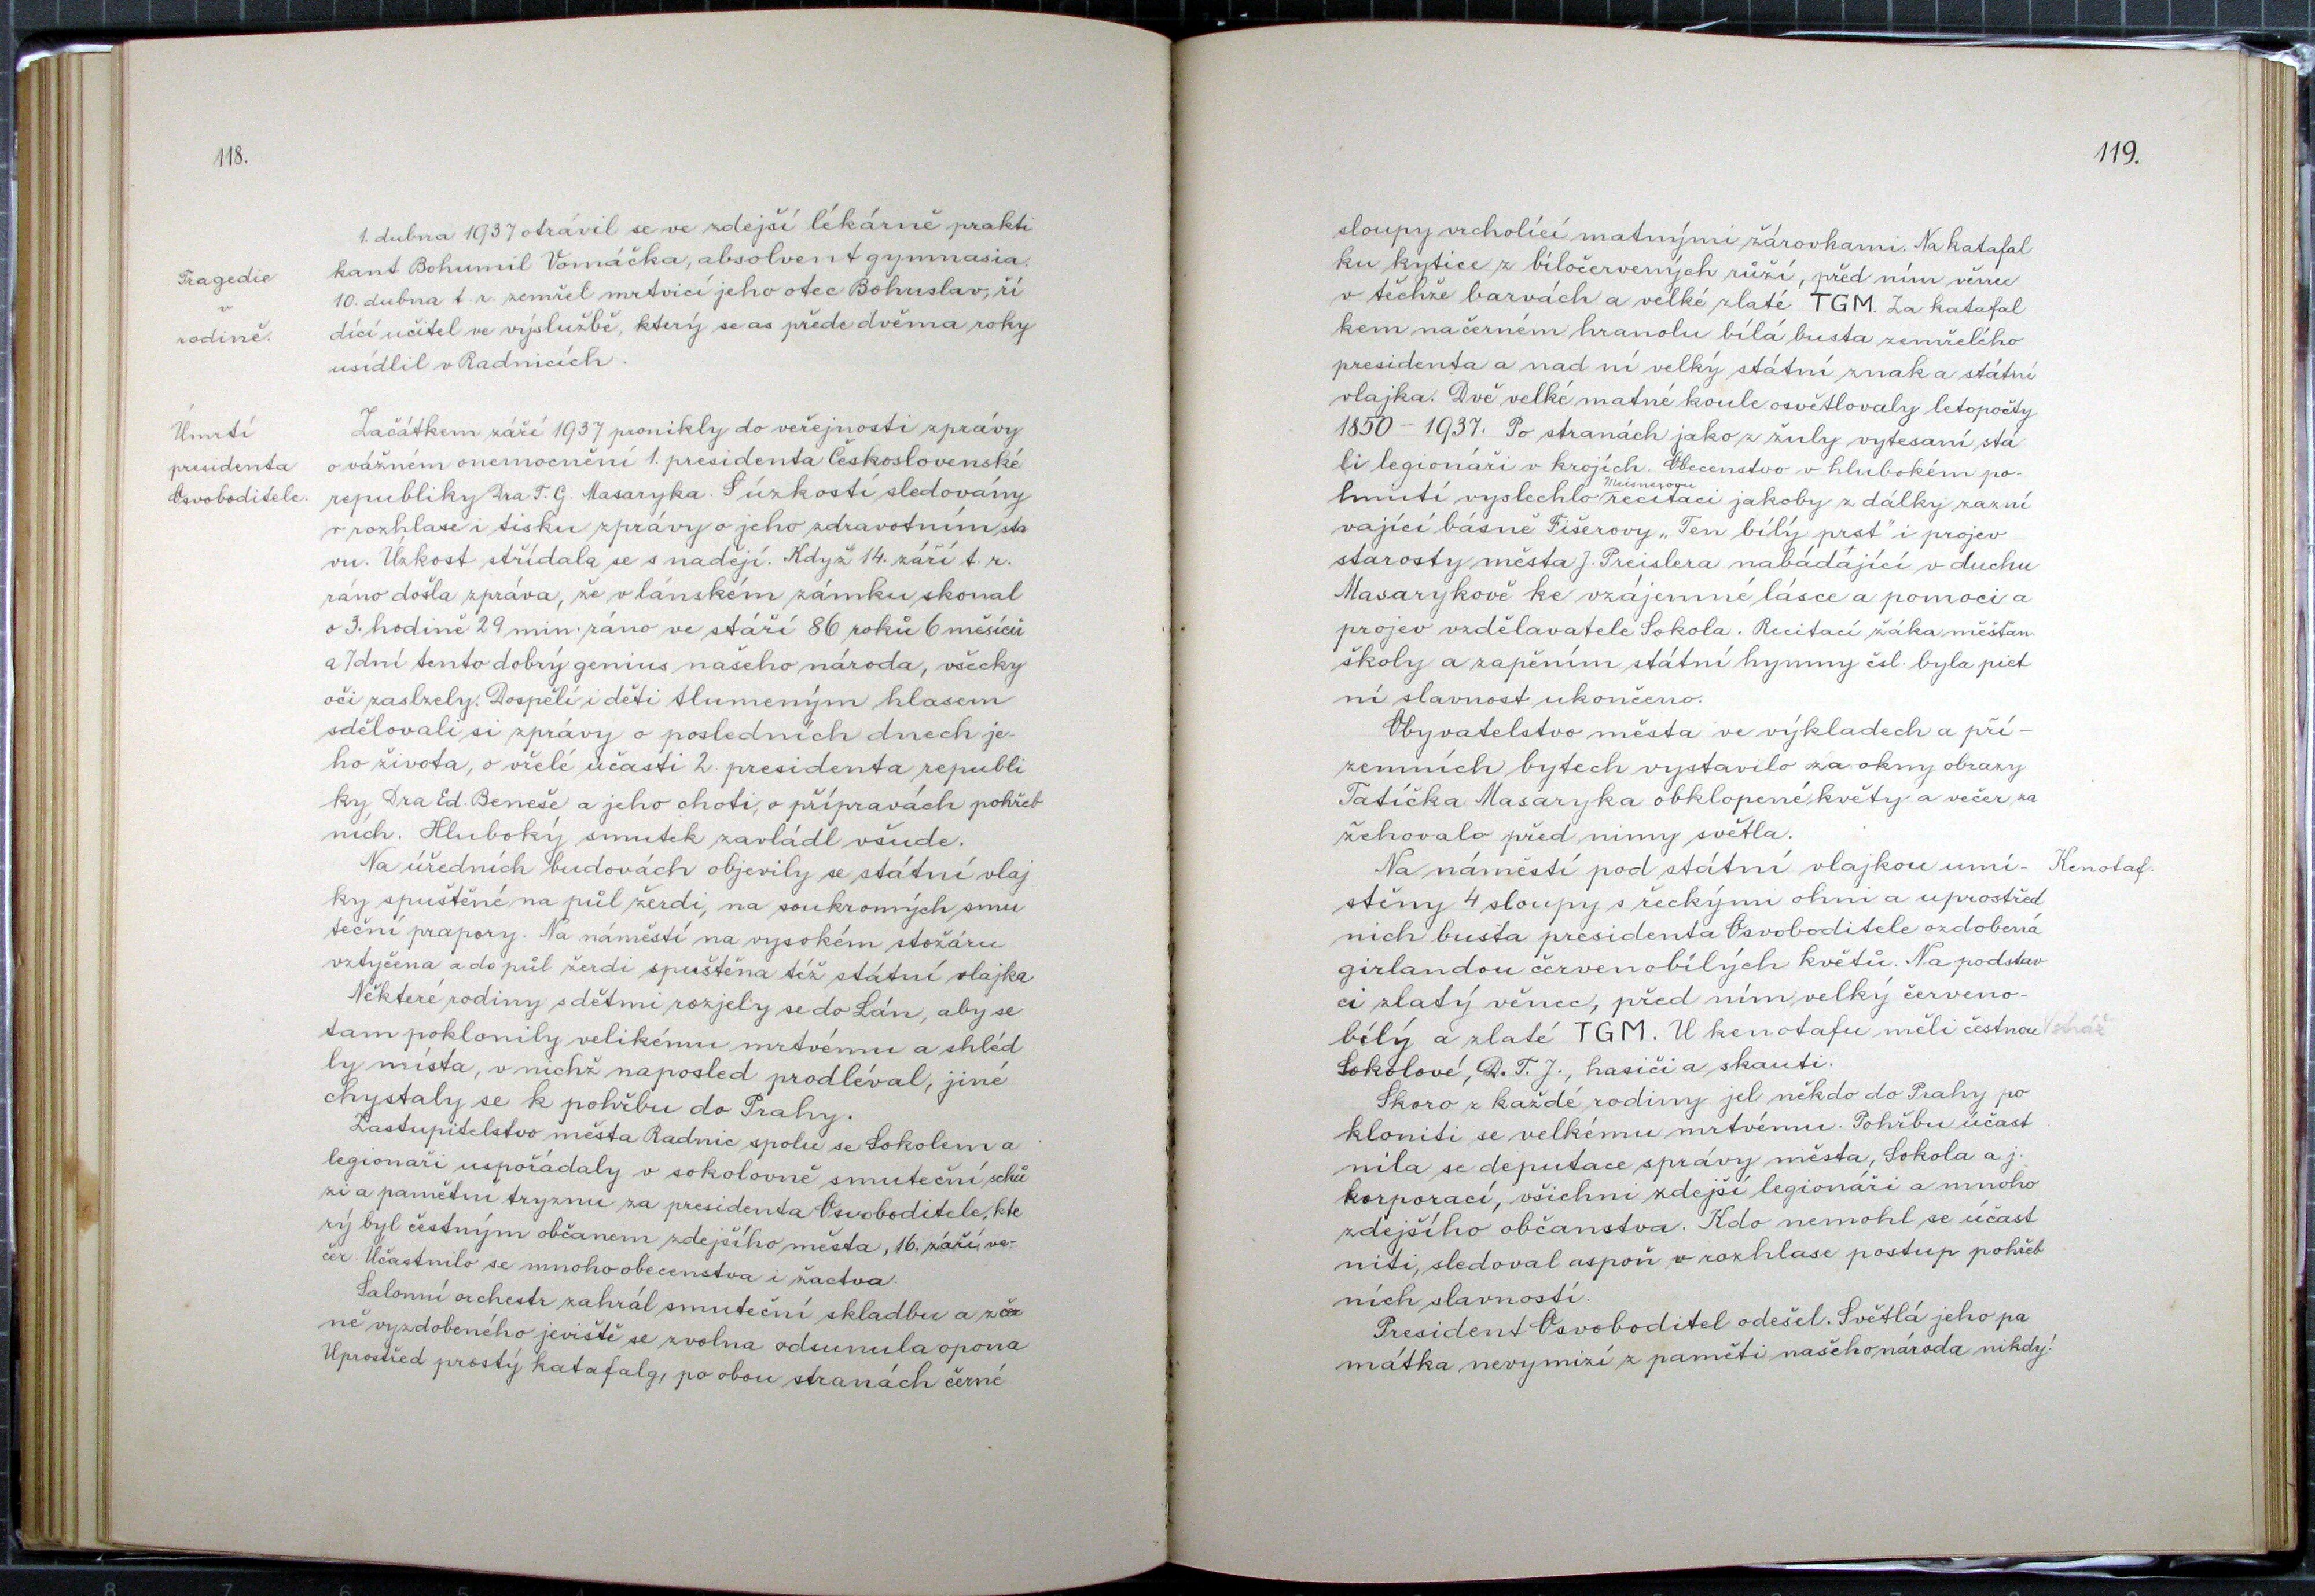 118.
1. dubna 1937 otrávil se ve zdejší lékárně prakti
kant Bohumil Vomáčka, absolvent gymnasia.
10. dubna t. r. zemřel mrtvicí jeho otec Bohuslav, ří
dící učitel ve výslužbě, který se as přede dvěma roky
usídlil v Radnicích.
Tragedie
v
rodině.
Úmrtí
presidenta
Osvoboditele.
Začátkem září 1937 pronikly do veřejnosti zprávy
o vážném onemocnění 1. presidenta Československé
republiky Dra T. G. Masaryka. S úzkostí sledovány
v rozhlase i tisku zprávy o jeho zdravotním sta
vu. Úzkost střídala se s nadějí. Když 14. září t. r.
ráno došla zpráva, že v lánském zámku skonal
o 3. hodině 29 min. ráno ve stáří 86 roků 6 měsíců
a 7 dní tento dobrý genius našeho národa, všecky
oči zaslzely. Dospělí i děti tlumeným hlasem
sdělovali si zprávy o posledních dnech je-
ho života, o vřelé účasti 2. presidenta republi
ky Dra Ed. Beneše a jeho choti, o přípravách pohřeb
ních. Hluboký smutek zavládl všude.
Na úředních budovách objevily se státní vlaj
ky spuštěné na půl žerdi, na soukromých smu
teční prapory. Na náměstí na vysokém stožáru
vztyčena a do půl žerdi spuštěna též státní vlajka
Některé rodiny s dětmi rozjely se do Lán, aby se
tam poklonily velikému mrtvému a shléd
ly místa, v nichž naposled prodléval, jiné
chystaly se k pohřbu do Prahy.
Zastupitelstvo města Radnic spolu se Sokolem a
legionaři uspořádaly v sokolovně smuteční schů
zi a pamětní tryznu za presidenta Osvoboditele, kte
rý byl čestným občanem zdejšího města, 16. září ve-
čer. Účastnilo se mnoho obecenstva i žactva.
Salonní orchestr zahrál smuteční skladbu a z čer
ně vyzdobeného jeviště se zvolna odsunula opona
Uprostřed prostý katafalg, po obou stranách černé
119.
sloupy vrcholící matnými žárovkami. Na katafal
ku kytice z bíločervených růží, před ním věnec
v těchže barvách a velké zlaté TGM. Za katafal
kem na černém hranolu bílá busta zemřelého
presidenta a nad ní velký státní znak a státní
vlajka. Dvě velké matné koule osvětlovaly letopočty
1850 - 1937. Po stranách jako z žuly vytesaní stá
li legionáři v krojích. Obecenstvo v hlubokém po-
hnutí vyslechlo recitaci jakoby z dálky zazní
vající básně Fišerovy „Ten bílý prst" i projev
starosty města J. Preislera nabádající v duchu
Masarykově ke vzájemné lásce a pomoci a
projev vzdělavatele Sokola. Recitací žáka měšťan.
školy a zapěním státní hymny čsl. byla piet
ní slavnost ukončeno.
Obyvatelstvo města ve výkladech a pří-
zemních bytech vystavilo za okny obrazy
Tatíčka Masaryka obklopené květy a večer za
žehovalo před nimy světla.
Na náměstí pod státní vlajkou umí-
stěny 4 sloupy s řeckými ohni a uprostřed
nich busta presidenta Osvoboditele ozdobená
girlandou červenobílých květů. Na podstav
ci zlatý věnec, před ním velký červeno-
bílý a zlaté TGM. U kenotafu měli čestnou stráž
Sokolové, D. T. J., hasiči a skauti.
Kenotaf.
Skoro z každé rodiny jel někdo do Prahy po
kloniti se velkému mrtvému. Pohřbu účast
nila se deputace správy města, Sokola a j.
korporací, všichni zdejší legionáři a mnoho
zdejšího občanstva. Kdo nemohl se účast
niti, sledoval aspoň v rozhlase postup pohřeb
ních slavností.
President Osvoboditel odešel. Světlá jeho pa
mátka nevymizí z paměti našeho národa nikdy!